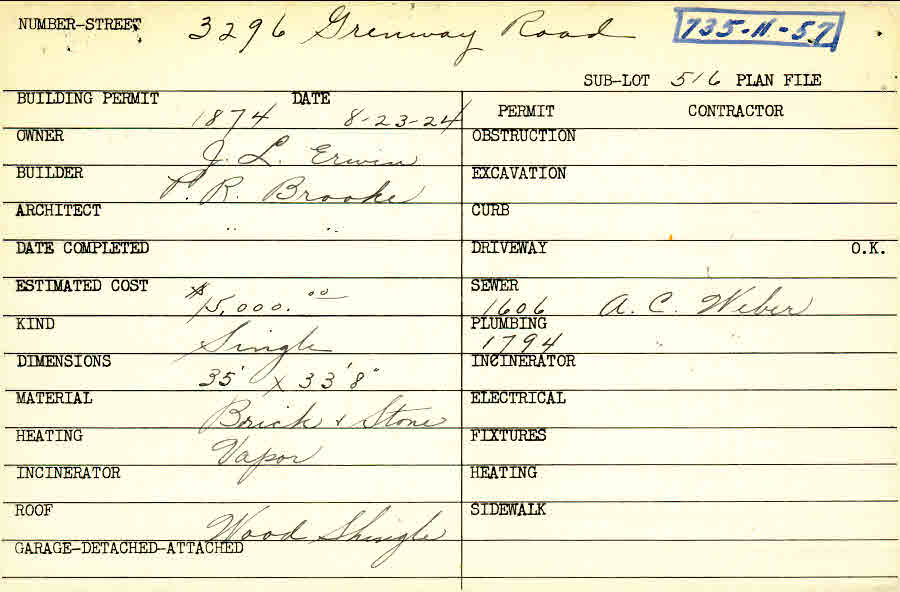 NUMBER-STREET 3296 Grenway Road 735-N-57
SUB-LOT 516 PLAN FILE
BUILDING PERMIT 1874 DATE 8-23-24
PERMIT CONTRACTOR
OWNER J. L. Erwin
OBSTRUCTION
BUILDER P. R. Brooke
EXCAVATION
ARCHITECT " "
CURB
DATE COMPLETED
DRIVEWAY O.K.
ESTIMATED COST $15,000.00
SEWER 1606 A. C. Weber
KIND Single
PLUMBING 1794
DIMENSIONS 35' x 33'8"
INCINERATOR
MATERIAL Brick & Stone
ELECTRICAL
HEATING Vapor
FIXTURES
INCINERATOR
HEATING
ROOF Wood Shingle
SIDEWALK
GARAGE-DETACHED-ATTACHED